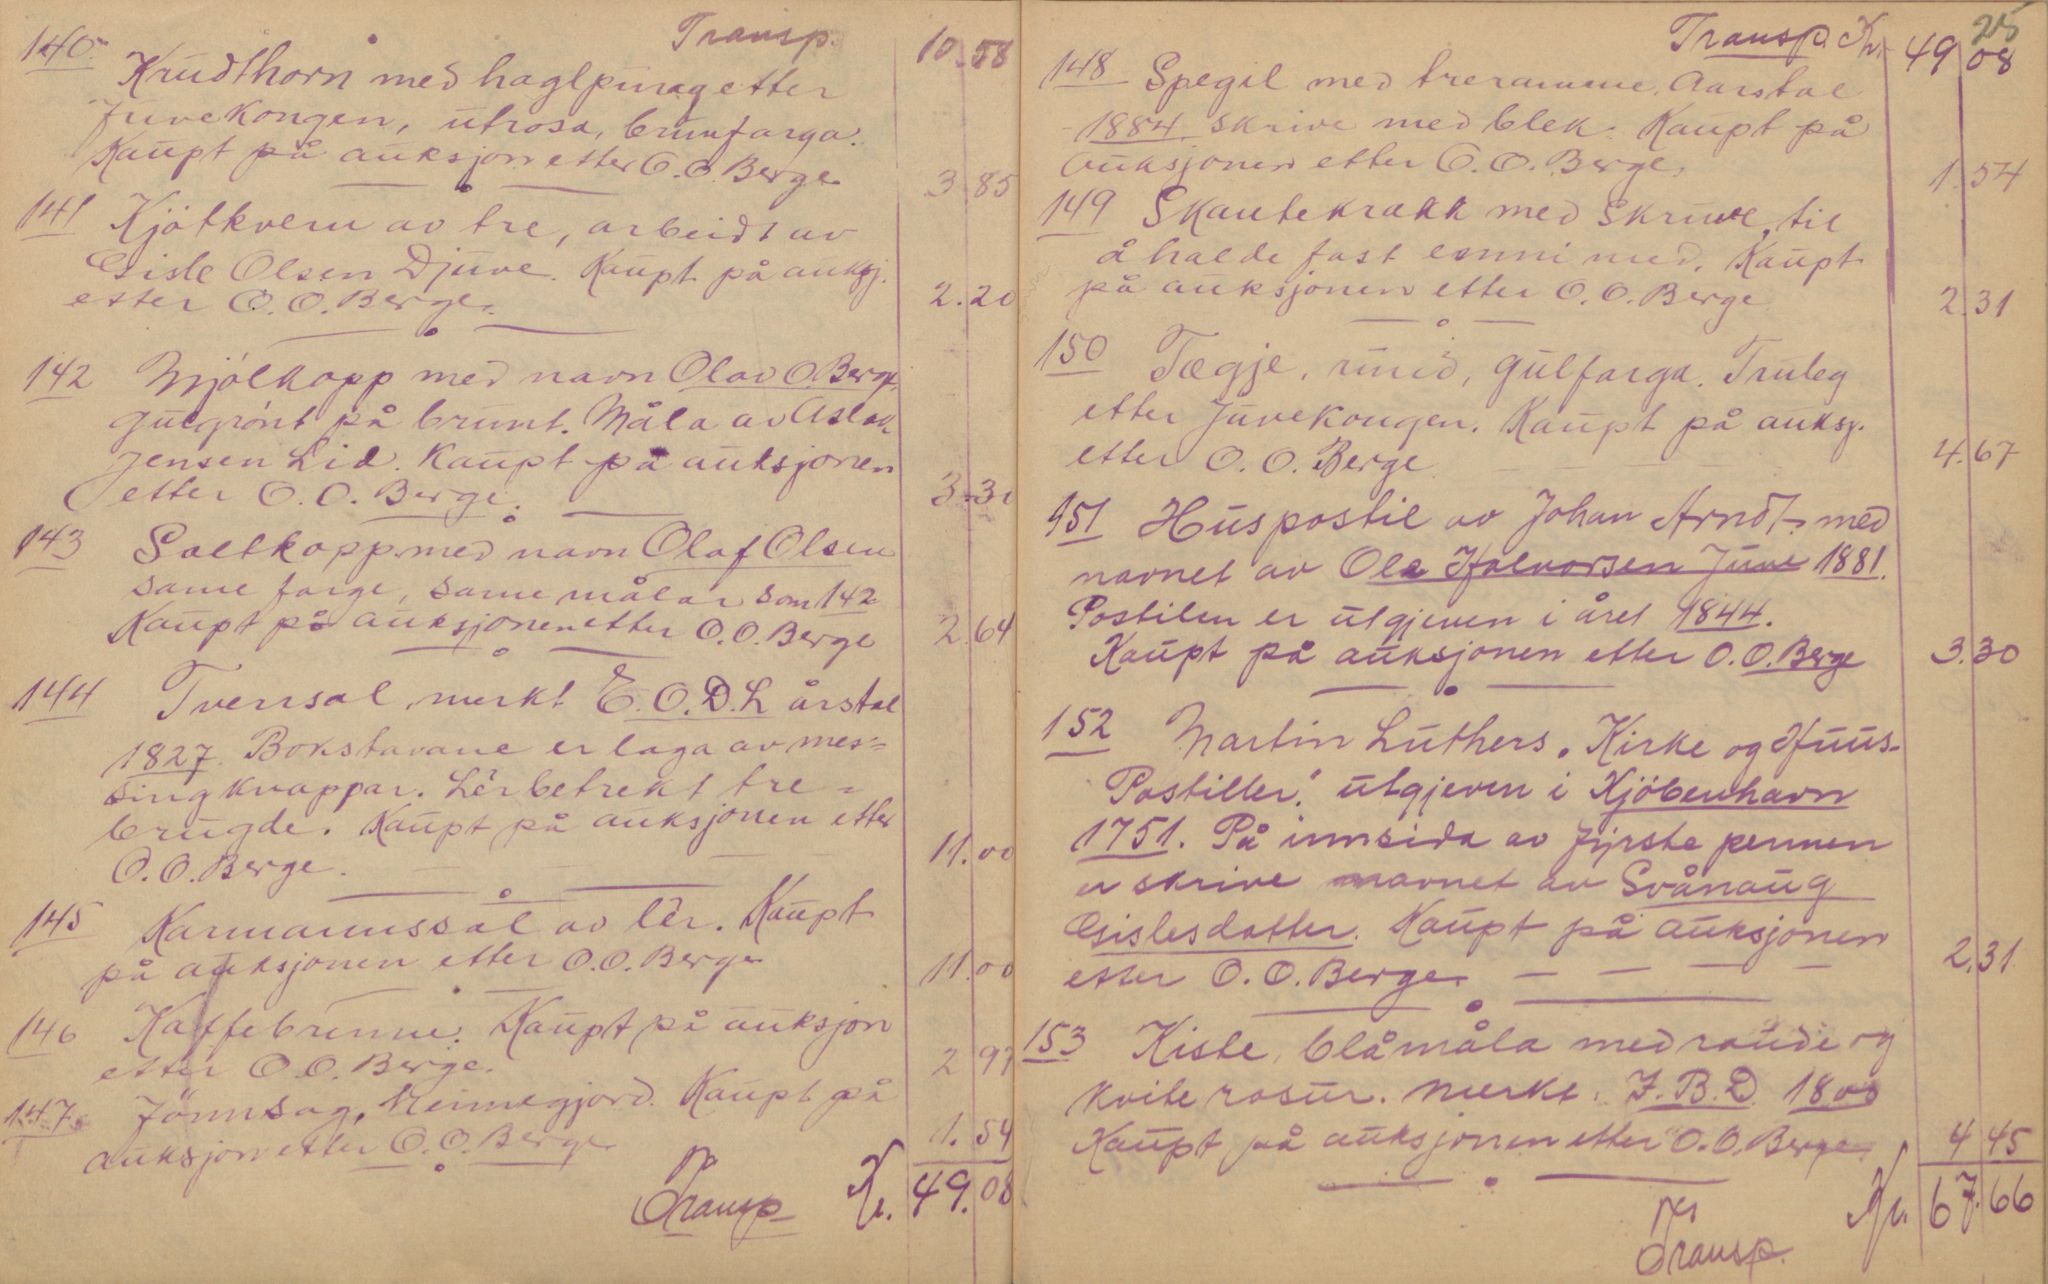 Transp. 10.58
140. Krudthorn med haglpung etter
Juvekongen, utrosa, brunfarga.
Kaupt på auksjon etter O.O. Berge 3.85
141 Kjötkvern av tre, arbeidt av
Gisle Olsen Djuve. Kaupt på auksj.
etter O.O. Berge. 2.20
142 Mjölkopp med navn Olav O. Berge
gulgrönt på brunt. Måla av Aslak
Jensen Lid. Kaupt på auksjonen
etter O.O. Berge. 3.30
143 Saltkopp med navn Olaf Olsen
same farge, same målar som 142
Kaupt på auksjonen etter O.O. Berge 2.64
144 Tverrsal, merkt E.O.D.L årstal
1827. Bokstavane er laga av mes=
singknappar. Lêrbetrekt tre=
brugde. Kaupt på auksjonen etter
O.O. Berge. 11.00
145 Karmannssål av lêr. Kaupt
på auksjonen etter O.O. Berge 11.00
146 Kaffebrenne. Kaupt på auksjon
etter O.O. Berge. 2 97
147. Jönnsag, heimegjord. Kaupt på
auksjon etter O.O. Berge 1.54
Transp Kr. 49.08
25
Transp. Kr. 49 08
148 Spegil med treramme. Aarstal
1884 skrive med blek. Kaupt på
auksjonen etter O.O. Berge. 1.54
149 Skautekrakk med skruve, til
å halde fast emni med. Kaupt
på auksjonen etter O.O. Berge 2.31
150 Tægje, rund, gulfarga. Truleg
etter Juvekongen. Kaupt på auksj.
etter O.O. Berge 4.67
151 Huspostil av Johan Arndt, med
navnet av Ole Halvorsen Juve 1881.
Postilen er utgjeven i året 1844.
Kaupt på auksjonen etter O.O. Berge 3.30
152 Martin Luthers "Kirke og Huus-
Postiller." utgjeven i Kjöbenhavn
1751. På innsida av fyrste permen
er skrive navnet av Svånaug
Gislesdatter. Kaupt på auksjonen
etter O.O. Berge. 2.31.
153 Kiste, blåmåla med raude og
kvite rosur. Merkt. J.B.D. 1800
Kaupt på auksjonen etter O.O. Berge. 4 45
Kr. 67.66
Transp.